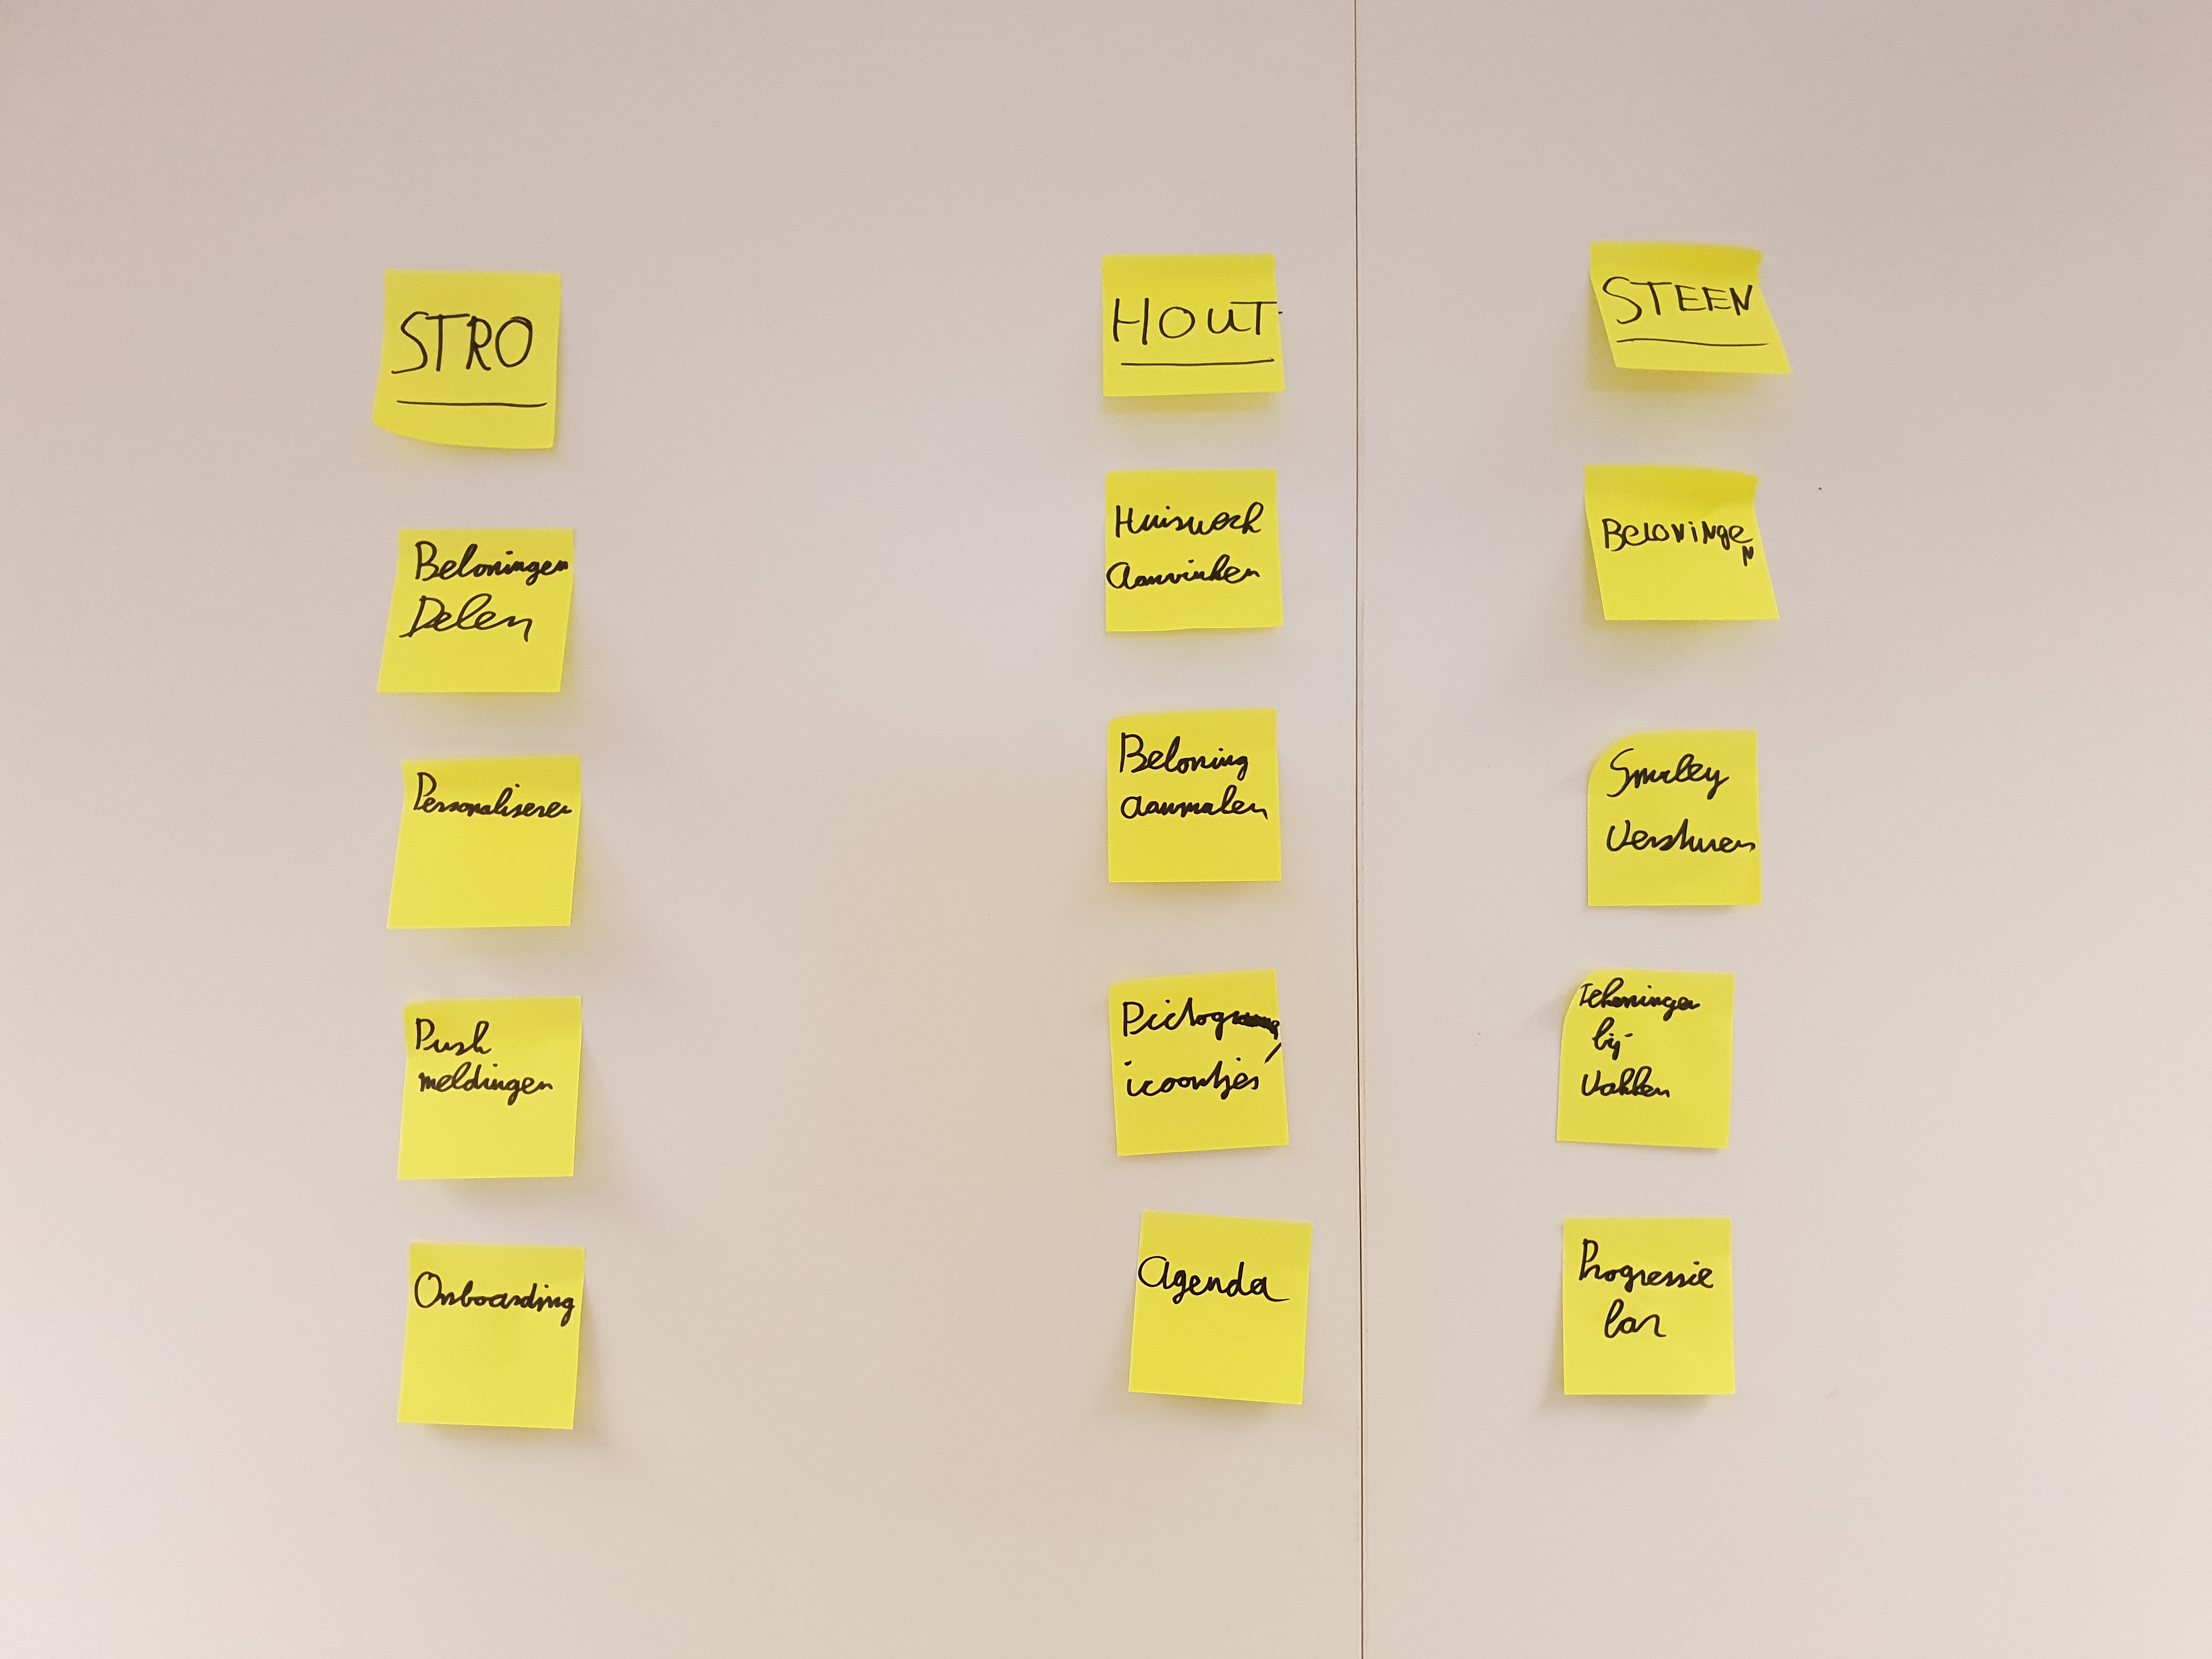 STRO
Beloningen
Delen
Personaliseren
Push
meldingen
Onboarding
HOUT
Huiswerk
Aanvinken
Beloning
aanmaken
Pictogramme,
icoontjes
Agenda
STEEN
Beloningen
Smiley
Versturen
Tekeningen
bij
Vakken
Progressie
bar